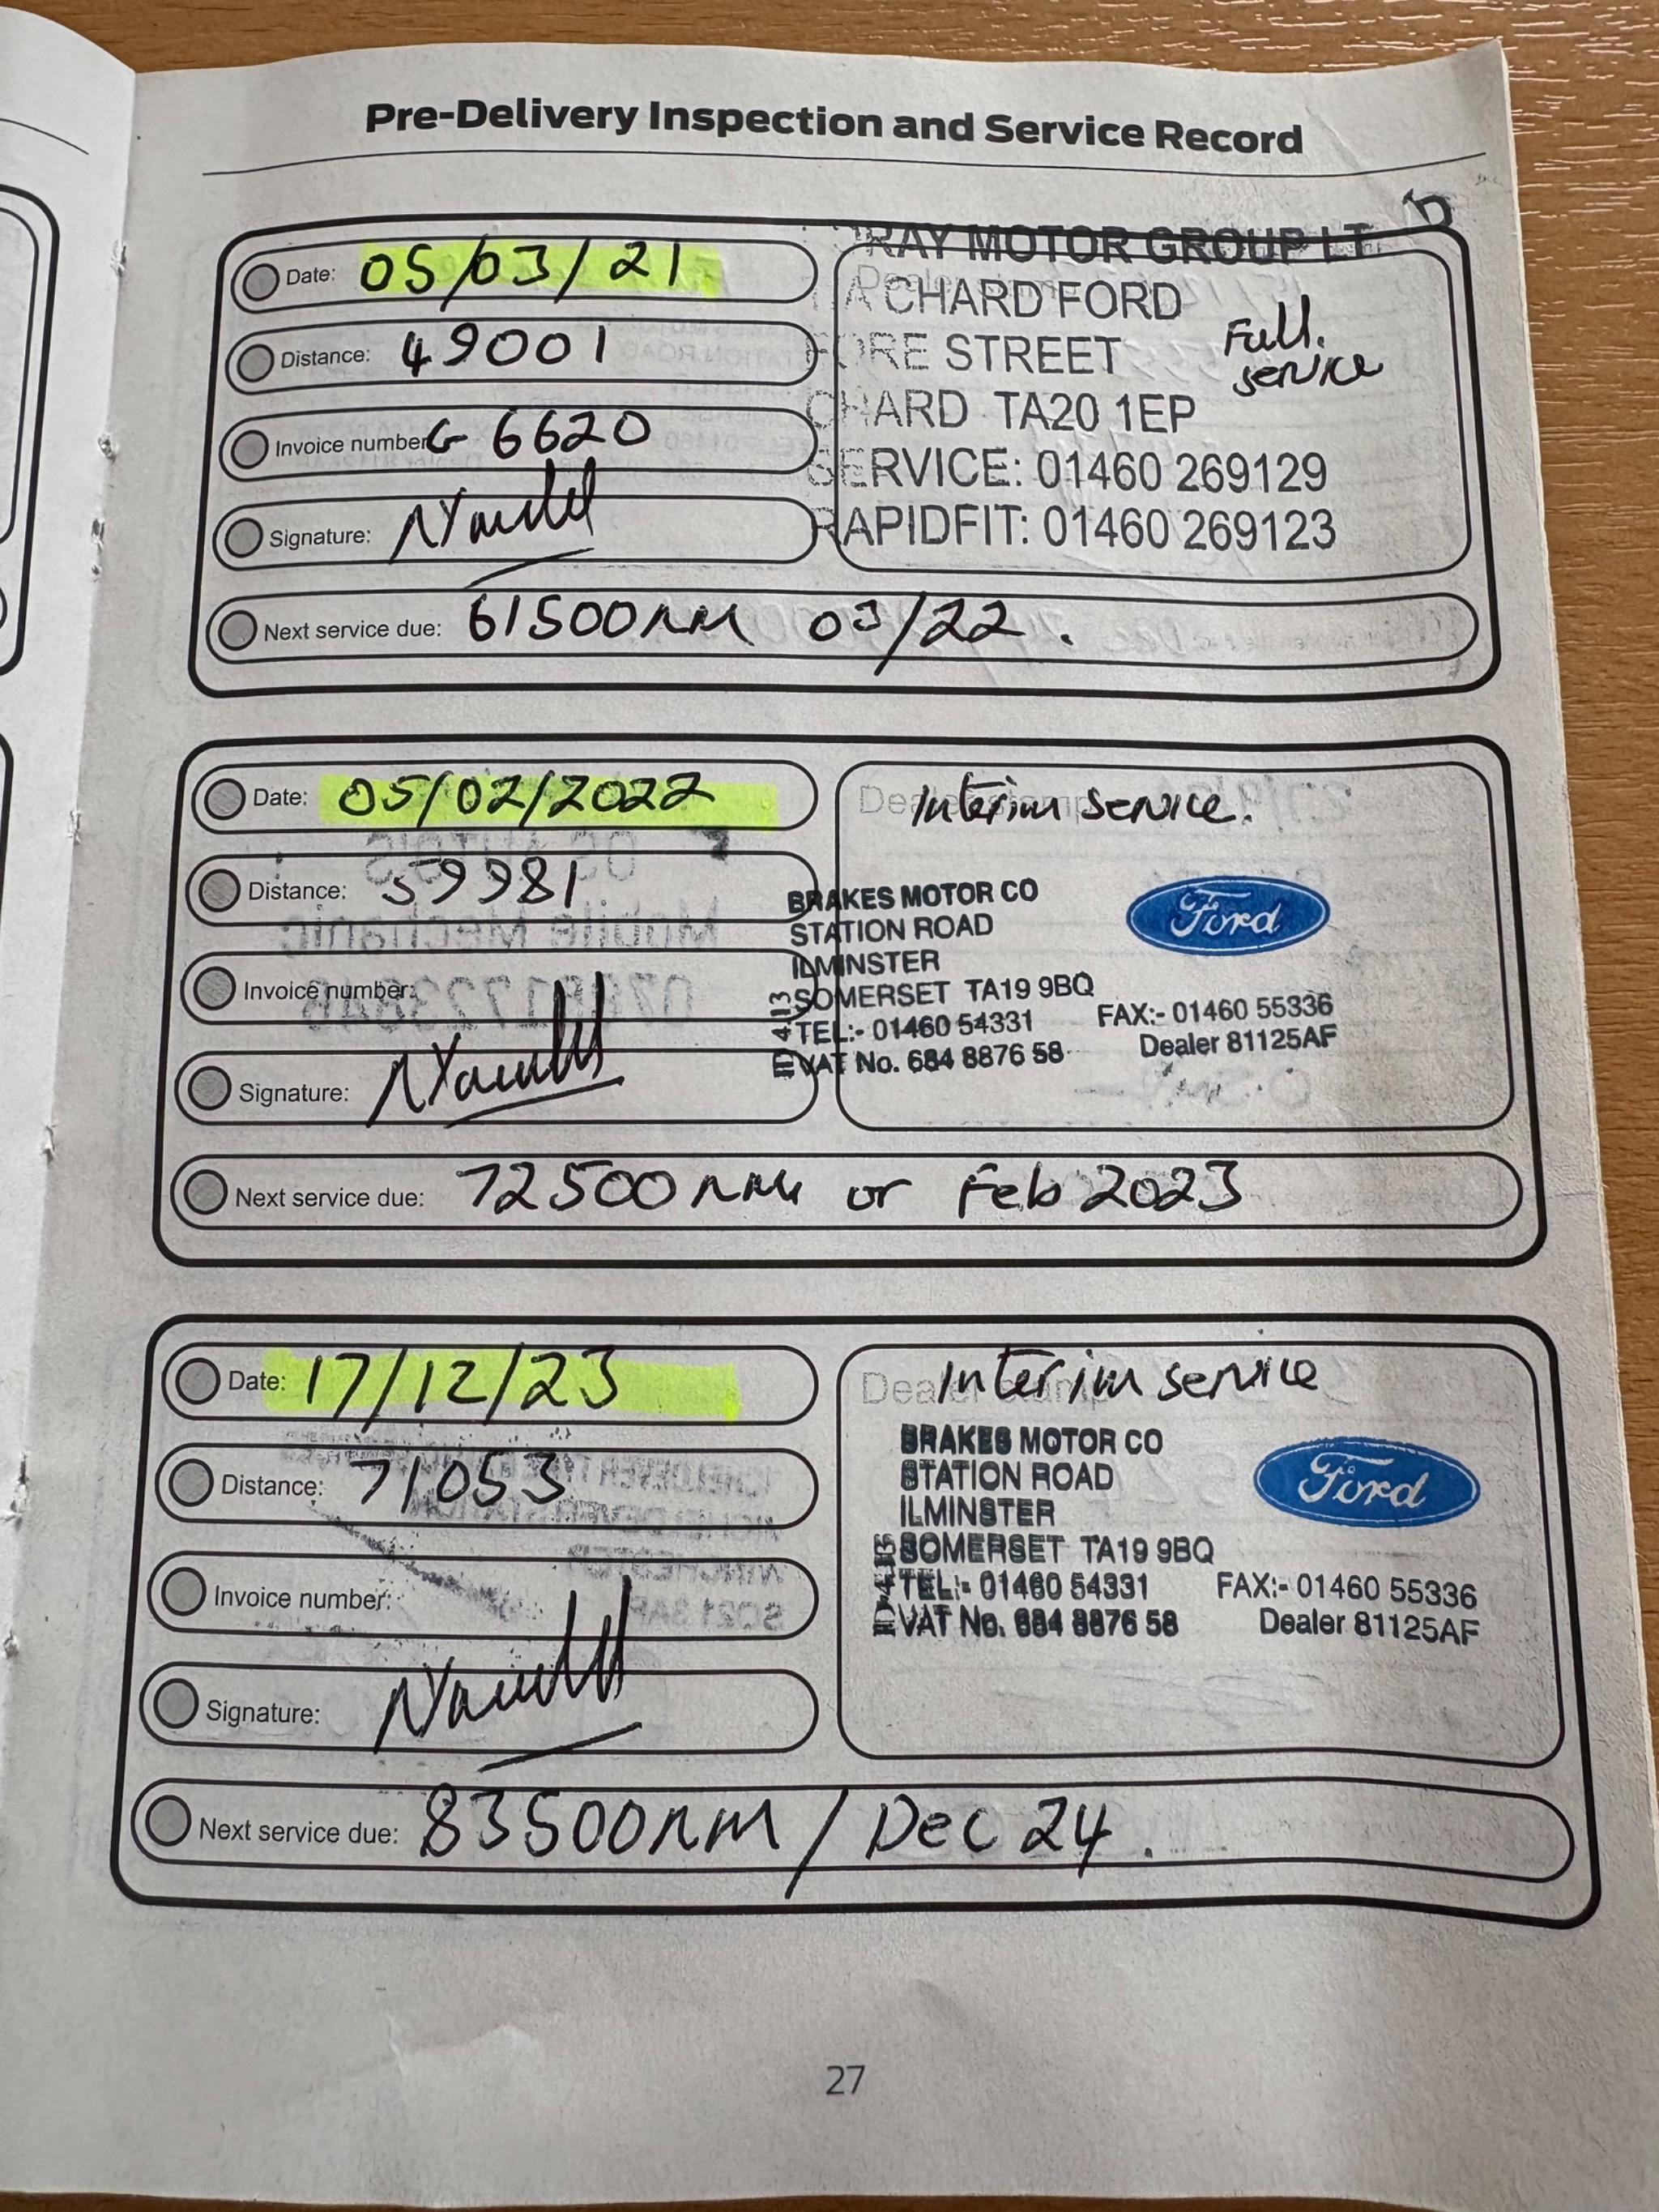 Pre-Delivery Inspection and Service Record
Date: 05/03/21
Distance: 49001
Invoice number: G 6620
Signature:
RAY MOTOR GROUP LT
CHARD FORD
FORE STREET
CHARD TA20 1EP
SERVICE: 01460 269129
RAPIDFIT: 01460 269123
Full.
service
Next service due: 61500 03/22.
Date: 05/02/2022
Distance: 59981
Invoice number:
Signature:
Dealer stamp
Interim service.
BRAKES MOTOR CO
STATION ROAD
ILMINSTER
SOMERSET TA19 9BQ
TEL:- 01460 54331 FAX:- 01460 55336
VAT No. 684 8876 58 Dealer 81125AF
ID 4113
Ford
Next service due: 72500 or Feb 2023
Date: 17/12/23
Distance: 71053
Invoice number:
Signature:
Dealer stamp
Interim service
BRAKES MOTOR CO
STATION ROAD
ILMINSTER
SOMERSET TA19 9BQ
TEL:- 01460 54331 FAX:- 01460 55336
VAT No. 684 8876 58 Dealer 81125AF
ID 4113
Ford
Next service due: 83500 / Dec 24.
27